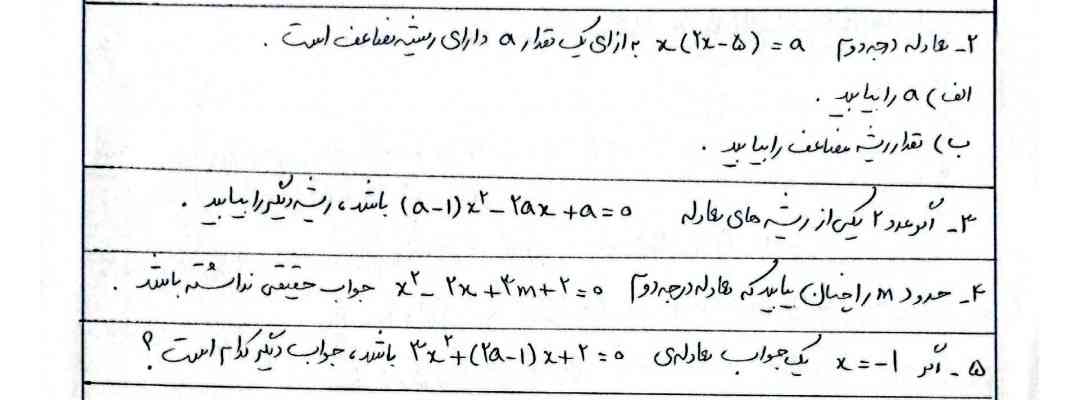 ۲- معادله درجه دوم x(۲x-۵)=a به ازای یک مقدار a دارای ریشه مضاعف است .
الف) a را بیابید .
ب) مقدار ریشه مضاعف را بیابید .
۳- اگر عدد ۲ یکی از ریشه های معادله (a-۱)x²-۲ax+a=۰ باشد، ریشه دیگر را بیابید .
۴- حدود m را چنان بیابید که معادله درجه دوم x²-۲x+۳m+۲=۰ جواب حقیقی نداشته باشد .
۵- اگر x=-۱ یک جواب معادله‌ی ۳x²+(۲a-۱)x+۲=۰ باشد، جواب دیگر کدام است ؟